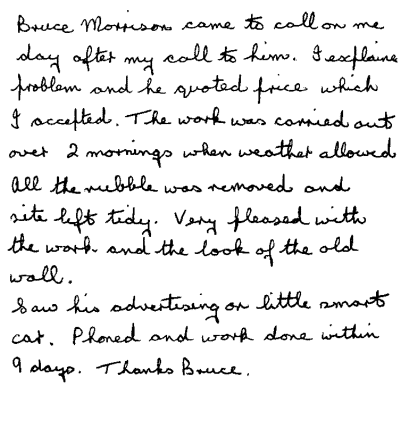 Bruce Morrison came to call on me
day after my call to him. I explaine
problem and he quoted price which
I accepted. The work was carried out
over 2 mornings when weather allowed
All the rubble was removed and
site left tidy. Very pleased with
the work and the look of the old
wall.
Saw his advertising on little smart
car. Phoned and work done within
9 days. Thanks Bruce.